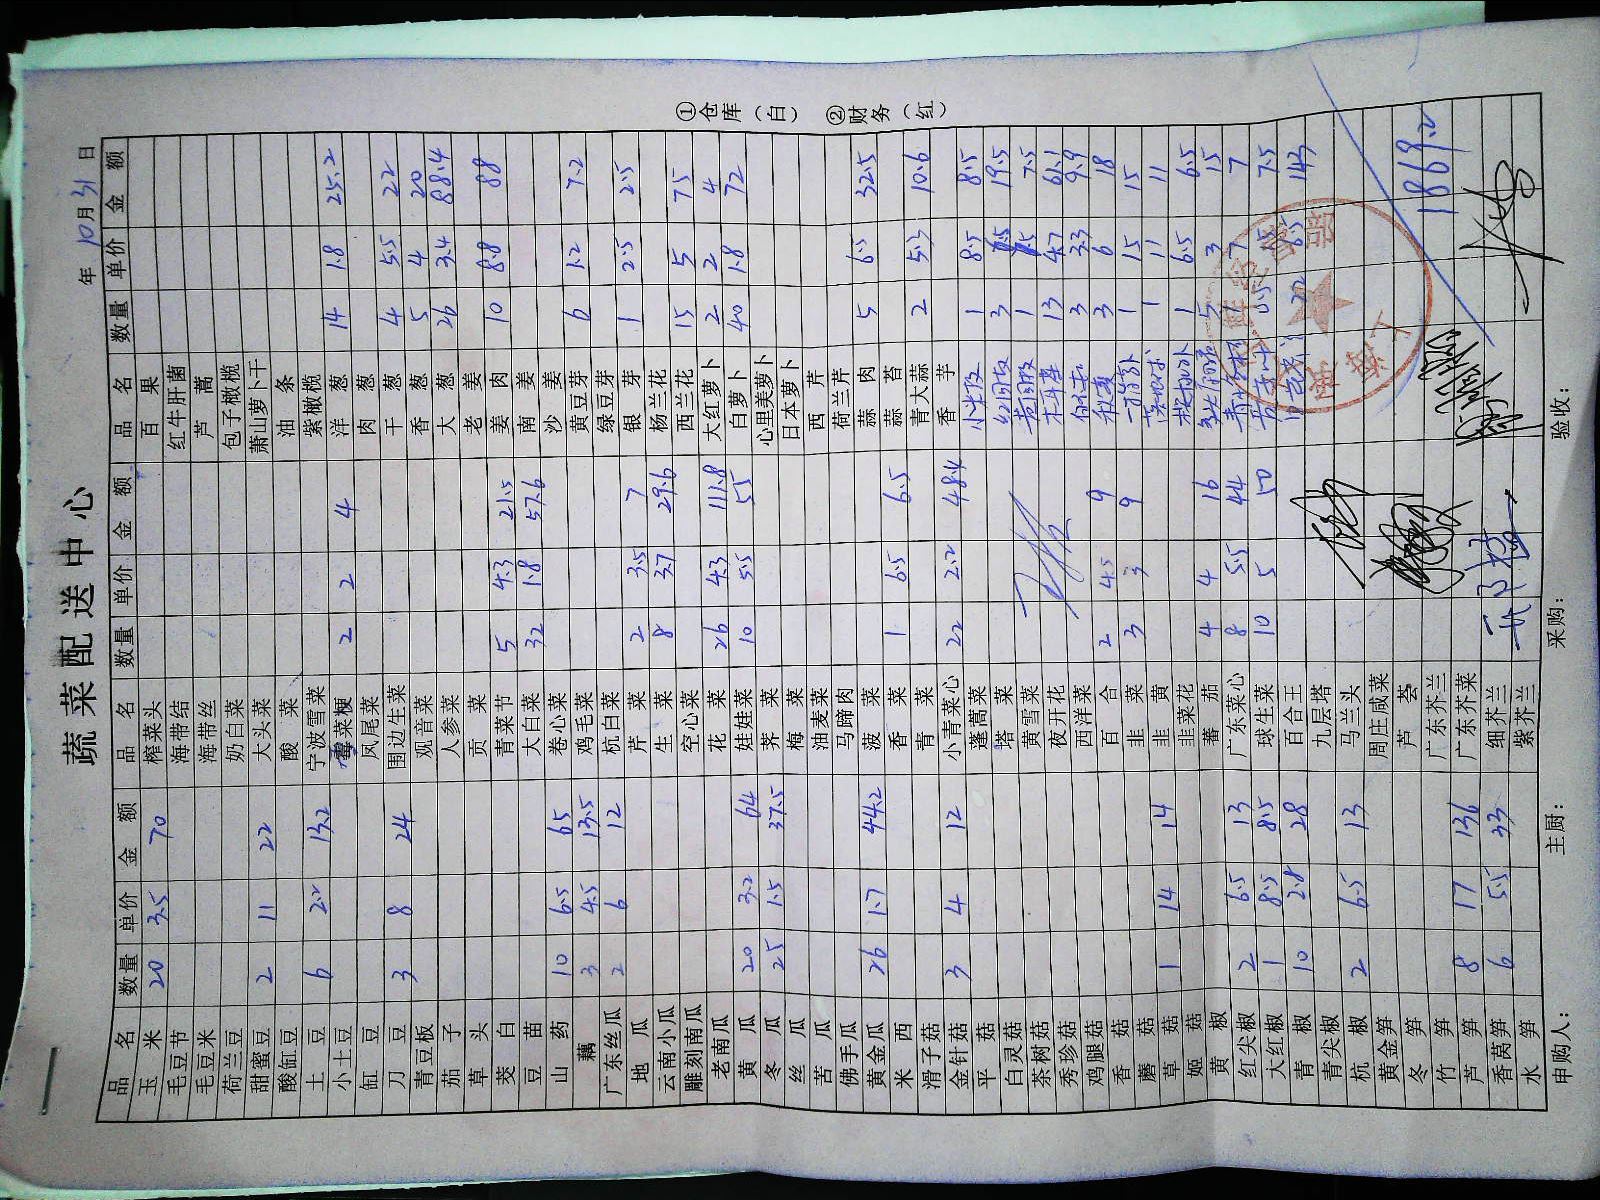 蔬菜配送中心
年 10月31日
品名 数量 单价 金额 品名 数量 单价 金额 品名 数量 单价 金额
玉米 20 3.5 70 榨菜头 百果
毛豆节 海带结 红牛肝菌
毛豆米 海带丝 芦蒿
荷兰豆 奶白菜 包子橄榄
甜蜜豆 2 11 22 大头菜 萧山萝卜干
酸缸豆 酸菜 油条
土豆 6 2.2 13.2 宁波雪菜 紫橄榄
小土豆 菜梗 2 2 4 洋葱 14 1.8 25.2
缸豆 凤尾菜 肉葱
刀豆 3 8 24 围边生菜 干葱 4 5.5 22
青豆板 观音菜 香葱 5 4 20
茄子 人参菜 大葱 26 3.4 88.4
草头 贡菜 老姜
茭白 青菜节 5 4.3 21.5 姜肉 10 8.8 88
豆苗 大白菜 32 1.8 57.6 南姜
山药 10 6.5 65 卷心菜 沙姜
藕 3 4.5 13.5 鸡毛菜 黄豆芽 6 1.2 7.2
广东丝瓜 2 6 12 杭白菜 绿豆芽
地瓜 芹菜 2 3.5 7 银芽 1 2.5 2.5
云南小瓜 生菜 8 3.7 29.6 杨兰花
雕刻南瓜 空心菜 西兰花 15 5 75
老南瓜 花菜 26 4.3 111.8 大红萝卜 2 2 4
黄瓜 20 3.2 64 娃娃菜 10 5.5 55 白萝卜 40 1.8 72
冬瓜 25 1.5 37.5 荠菜 心里美萝卜
丝瓜 梅菜 日本萝卜
苦瓜 油麦菜 西芹
佛手瓜 马蹄肉 荷兰芹
黄金瓜 26 1.7 44.2 菠菜 蒜肉 5 6.5 32.5
米西 香菜 1 6.5 6.5 蒜苔
滑子菇 青菜 青大蒜 2 5.3 10.6
金针菇 3 4 12 小青菜心 22 2.2 48.4 香芋
平菇 蓬蒿菜 小米椒 1 8.5 8.5
白灵菇 塔菜 红圆椒 3 6.5 19.5
茶树菇 黄雪菜 黄圆椒 1 7.5 7.5
秀珍菇 夜开花 13 4.7 61.1
鸡腿菇 西洋菜 3 3.3 9.9
香菇 百合 2 4.5 9 3 6 18
蘑菇 韭菜 3 3 9 1 15 15
草菇 1 14 14 韭黄 1 11 11
姬菇 韭菜花 1 6.5 6.5
黄椒 蕃茄 4 4 16 5 3 15
红尖椒 2 6.5 13 广东菜心 8 5.5 44 1 7 7
大红椒 1 8.5 8.5 球生菜 10 5 50 0.5 15 7.5
青椒 10 2.8 28 百合王 22 6.5 143
青尖椒 九层塔
杭椒 2 6.5 13 马兰头
黄金笋 周庄咸菜
冬笋 芦荟
竹笋 广东芥兰 1869.2
芦笋 8 17 136 广东芥菜
香莴笋 6 5.5 33 细芥兰
水笋 紫芥兰
申购人： 主厨： 采购： 验收：
①仓库（白） ②财务（红）